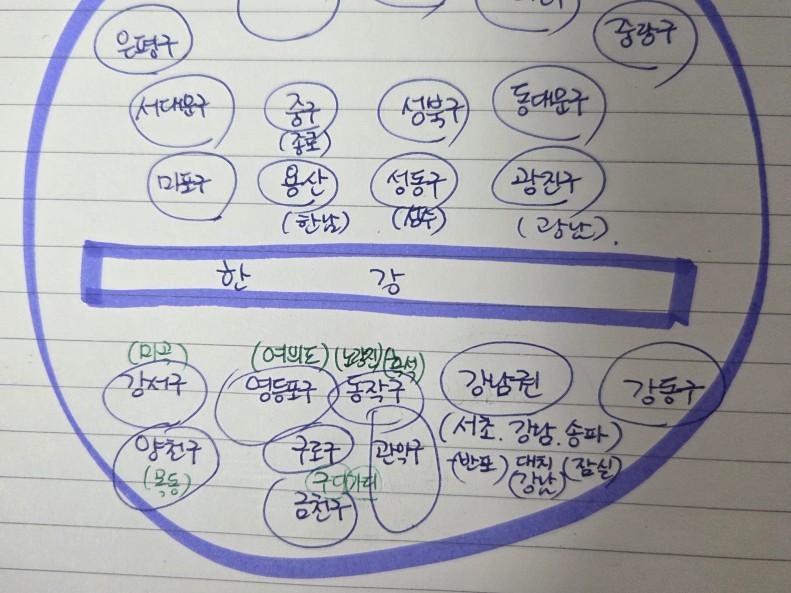 은평구 중랑구
서대문구 중구 성북구 동대문구
(종로)
마포구 용산 성동구 광진구
(한남) (성수) (강남).
한 강
(마곡) (여의도) (노량진) (흑석)
강서구 영등포구 동작구 강남권 강동구
(서초. 강남. 송파)
양천구 구로구 관악구 (반포) 대치 (잠실)
(목동) 구디가디 (강남)
금천구